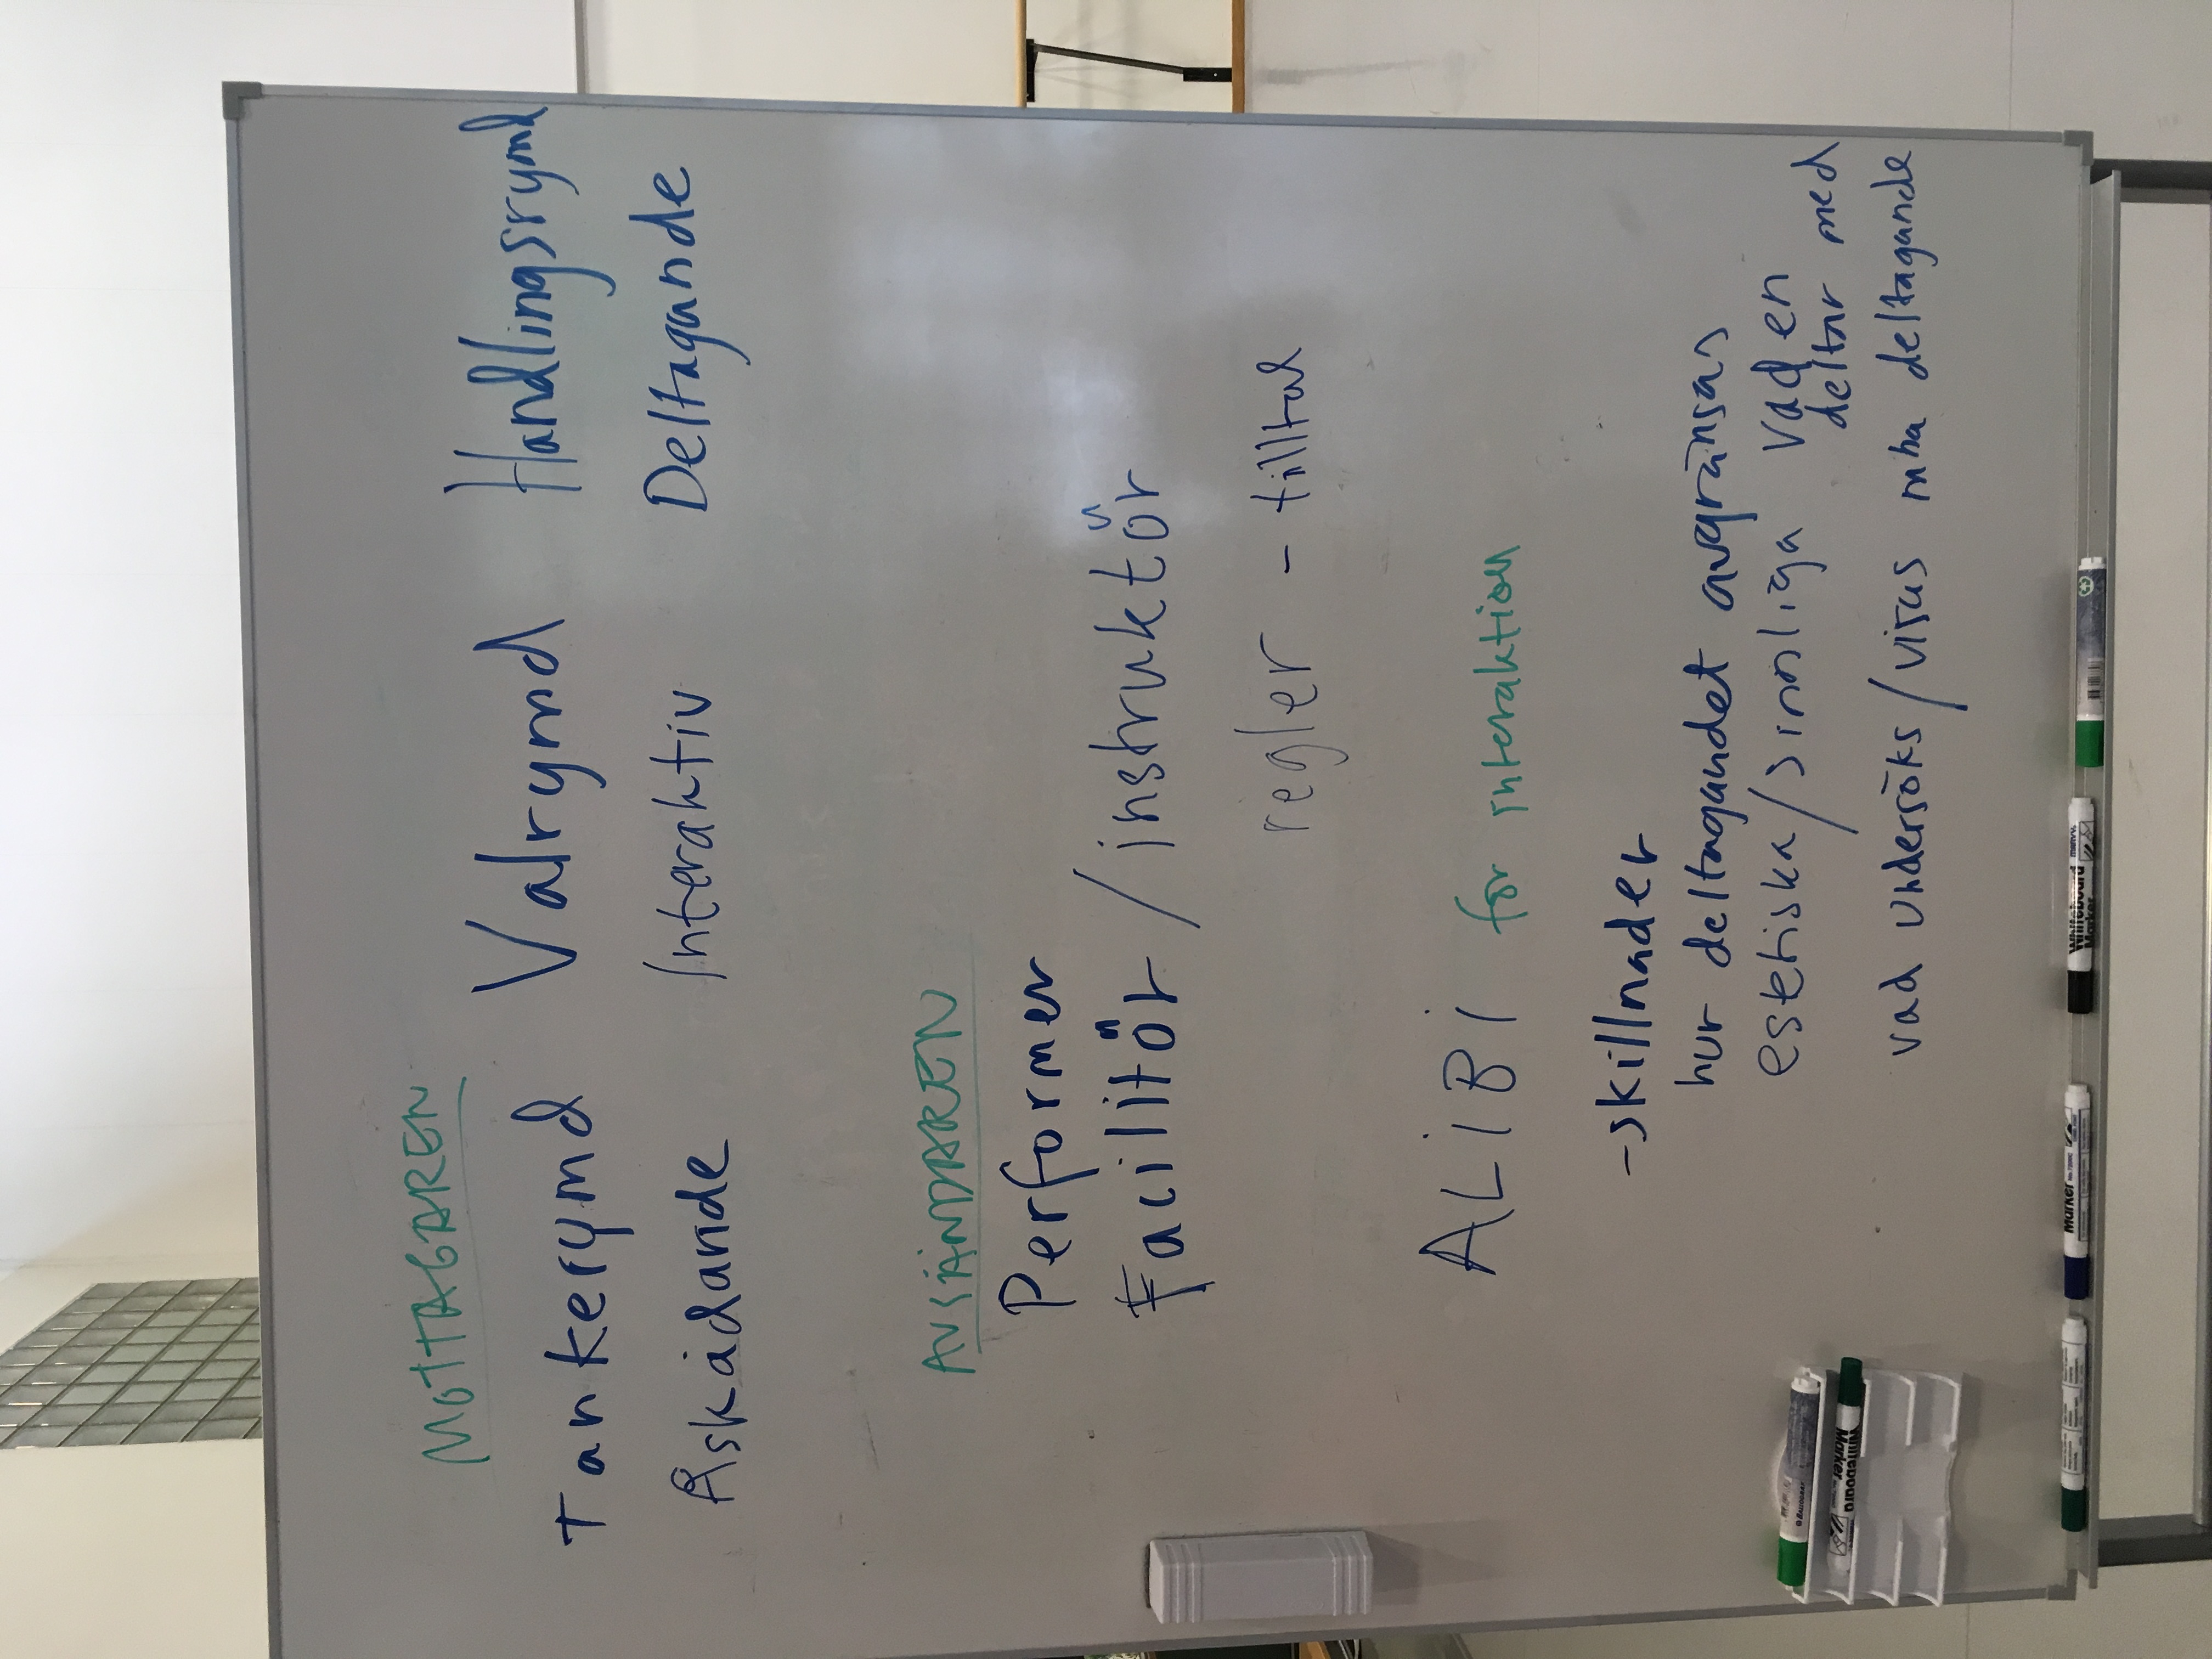 MOTTAGAREN
Tankerymd Valrymd Handlingsrymd
Åskådande Interaktiv Deltagande
AVSÄNDAREN
Performer
Facilitör / instruktör
regler - tilltal
ALiBi för interaktion
-skillnader
hur deltagandet avgränsas
estetiska/sinnliga vad en
deltar med
vad undersöks/visas mha deltagande
Whiteboard
Marker
Marker No.7200C
Whiteboard
Marker